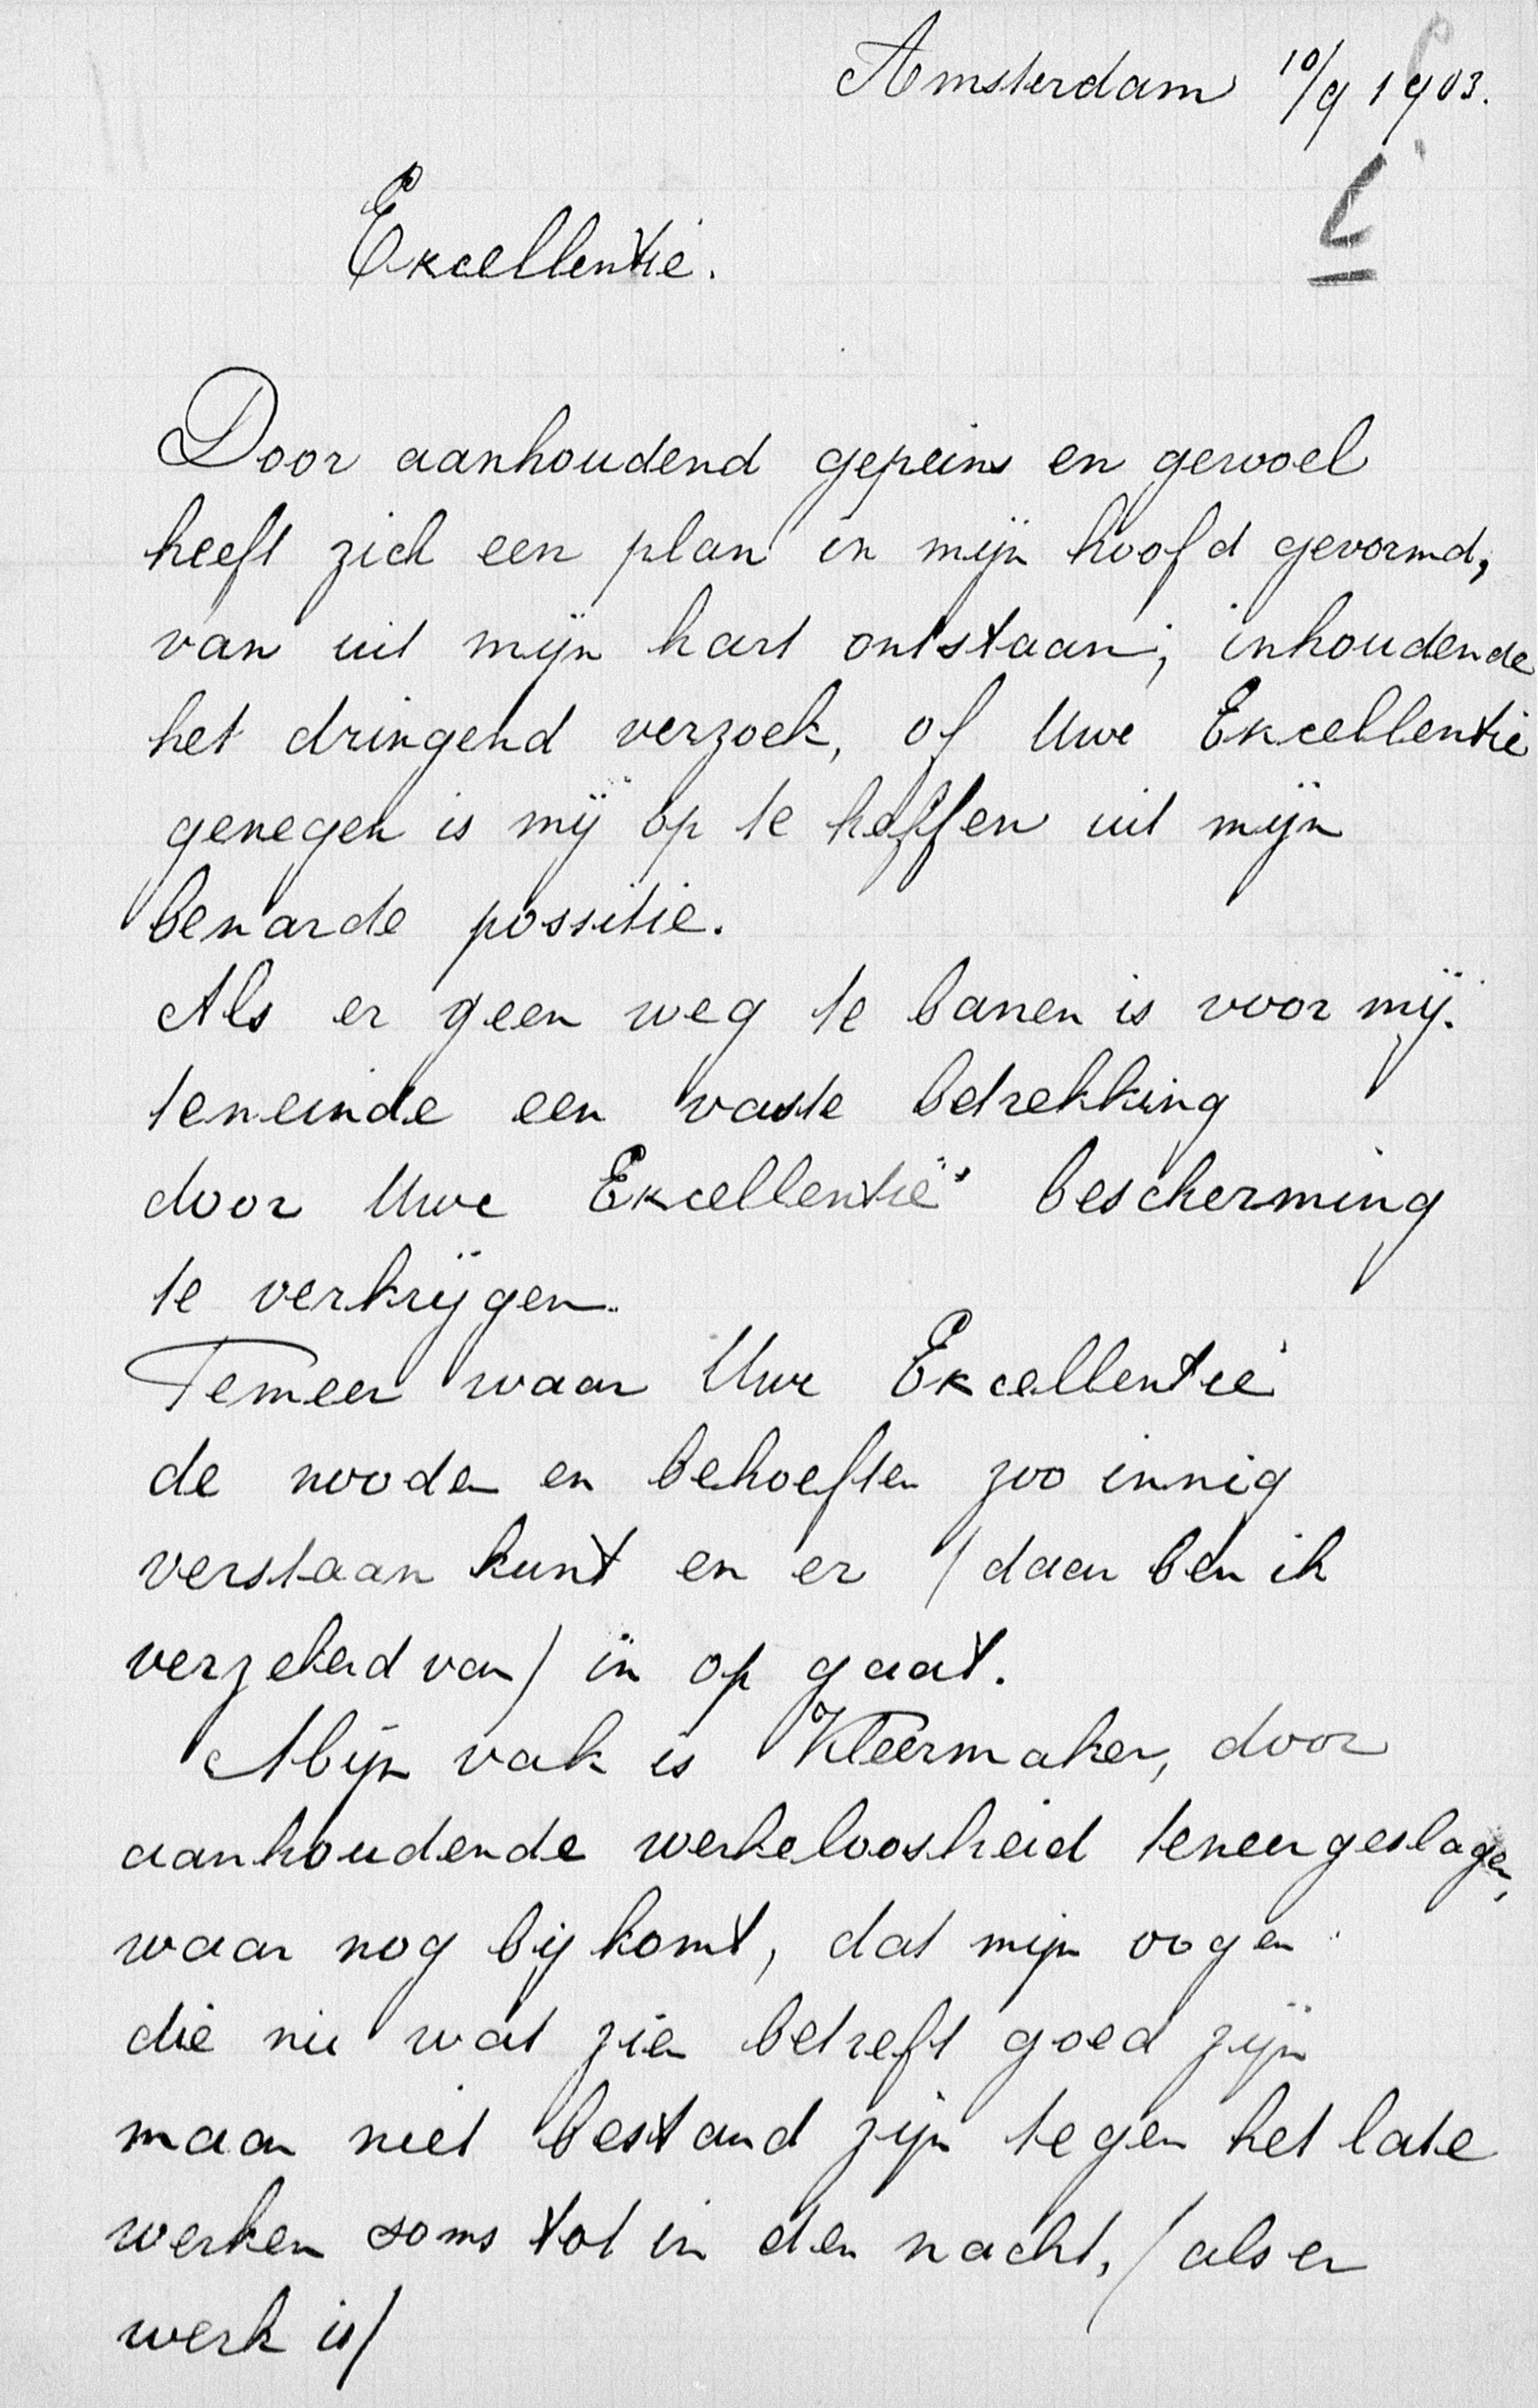 Amsterdam 10/9 1903.
Excellentie.
Door aanhoudend gepeins en gewoel
heeft zich een plan in mijn hoofd gevormd,
van uit mijn hart ontstaan; inhoudende
het dringend verzoek, of Uwe Excellentie
genegen is mij op te heffen uit mijn
benarde possitie.
Als er geen weg te banen is voor mij.
teneinde een vaste betrekking
door Uwe Excellentie's bescherming
te verkrijgen.
Temeer waar Uwe Excellentie
de nooden en behoeften zoo innig
verstaan kunt en er (daar ben ik
verzekerd van) in op gaat.
Mijn vak is Kleermaker, door
aanhoudende werkeloosheid teneergeslagen,
waar nog bij komt, dat mijn oogen
die nu wat zien betreft goed zijn
maar niet bestand zijn tegen het late
werken soms tot in den nacht, (als er
werk is)